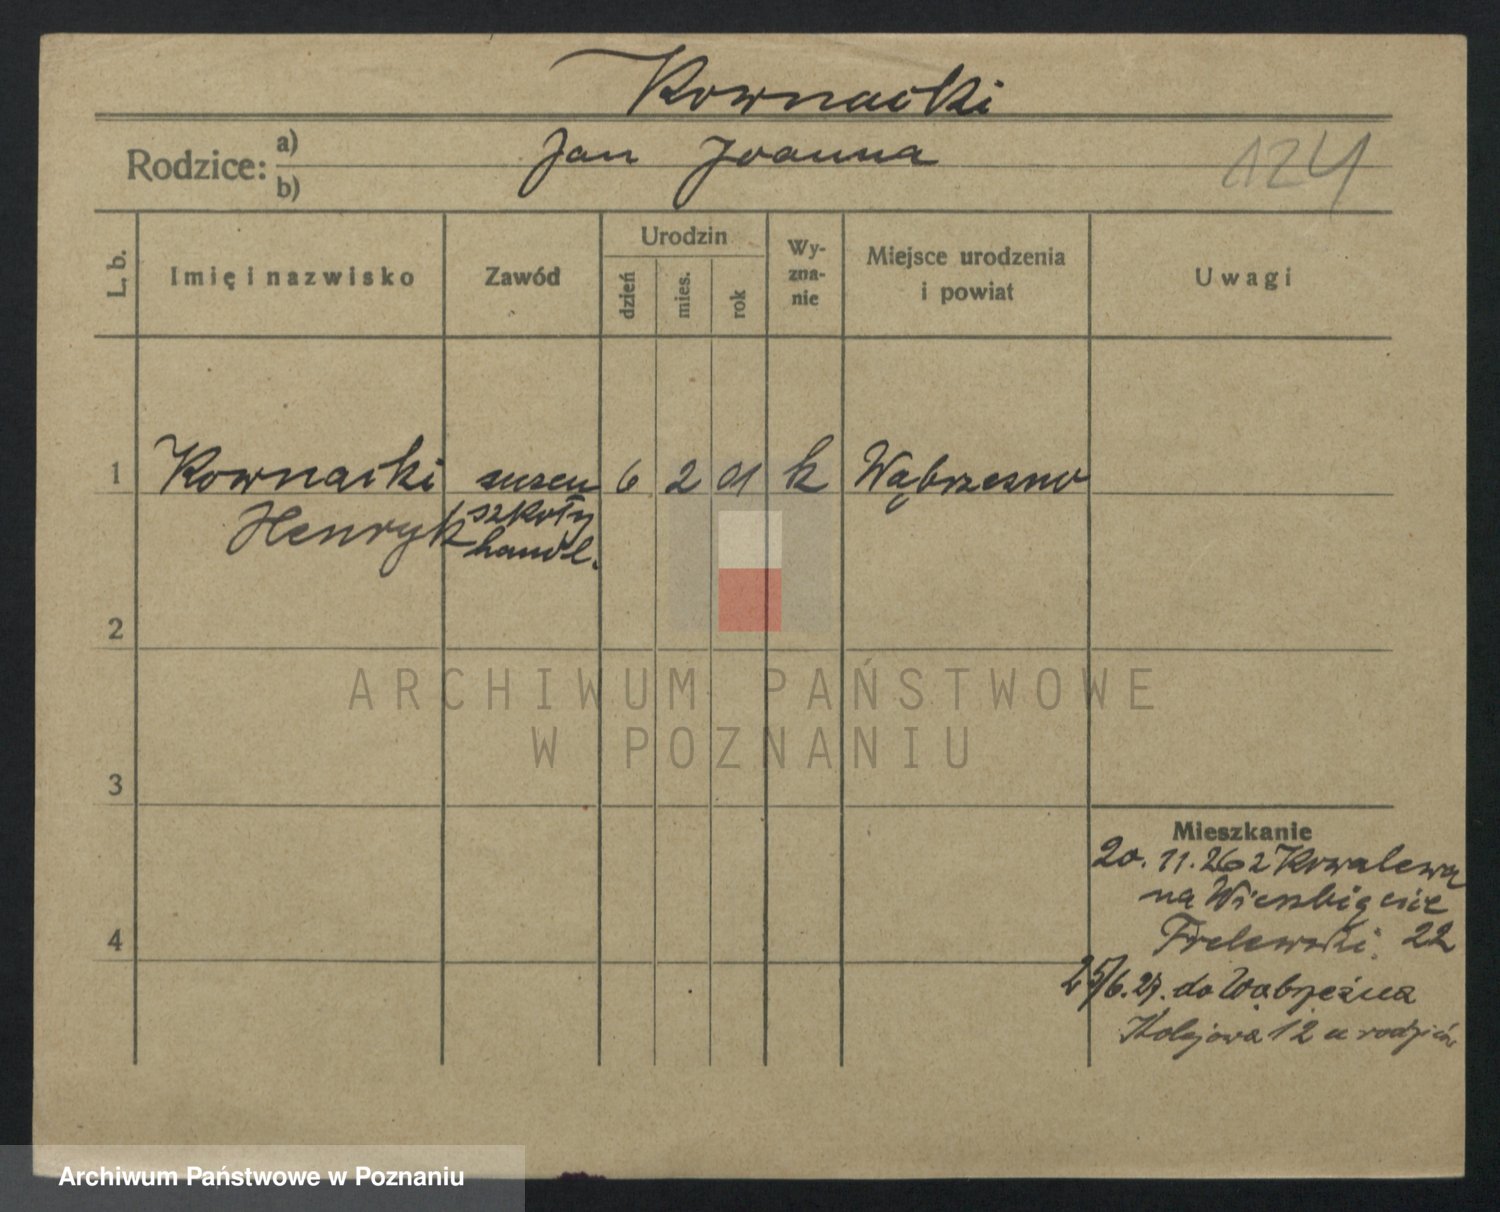 Kownacki
Rodzice: a) b)
Jan Joanna
124
L. b.
Imię i nazwisko
Zawód
Urodzin
dzień
mies.
rok
Wy-
zna-
nie
Miejsce urodzenia
i powiat
Uwagi
1
Kownacki
Henryk
uczeń
szkoły
handl.
6 2 01 k Wąbrzezno
2
3
4
Mieszkanie
20. 11. 26 z Kowalewa
na Wierzbięcice
22
25/6.27. do Wąbrzeźna
Kolejowa 12 u rodziców
ARCHIWUM PAŃSTWOWE
W POZNANIU
Archiwum Państwowe w Poznaniu